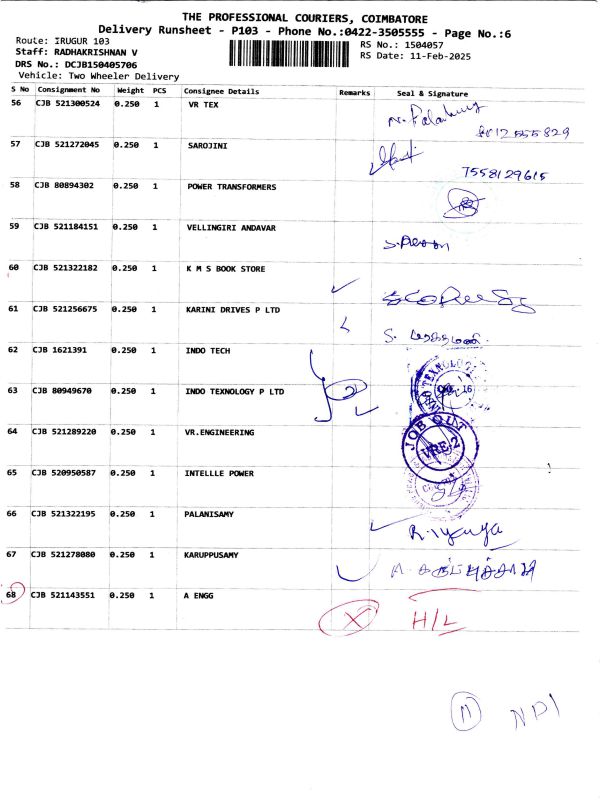 THE PROFESSIONAL COURIERS, COIMBATORE
Delivery Runsheet - P103 - Phone No.:0422-3505555 - Page No.:6
Route: IRUGUR 103
RS No.: 1504057
Staff: RADHAKRISHNAN V
RS Date: 11-Feb-2025
DRS No.: DCJB150405706
Vehicle: Two Wheeler Delivery
S No Consignment No Weight PCS Consignee Details Remarks Seal & Signature
56 CJB 521300524 0.250 1 VR TEX
57 CJB 521272045 0.250 1 SAROJINI
7558129615
58 CJB 80894302 0.250 1 POWER TRANSFORMERS
59 CJB 521184151 0.250 1 VELLINGIRI ANDAVAR
60 CJB 521322182 0.250 1 K M S BOOK STORE
61 CJB 521256675 0.250 1 KARINI DRIVES P LTD
62 CJB 1621391 0.250 1 INDO TECH
63 CJB 80949670 0.250 1 INDO TEXNOLOGY P LTD
64 CJB 521289220 0.250 1 VR.ENGINEERING
JOB OUT
VRE 2
65 CJB 520950587 0.250 1 INTELLLE POWER
66 CJB 521322195 0.250 1 PALANISAMY
67 CJB 521278080 0.250 1 KARUPPUSAMY
68 CJB 521143551 0.250 1 A ENGG X H/L